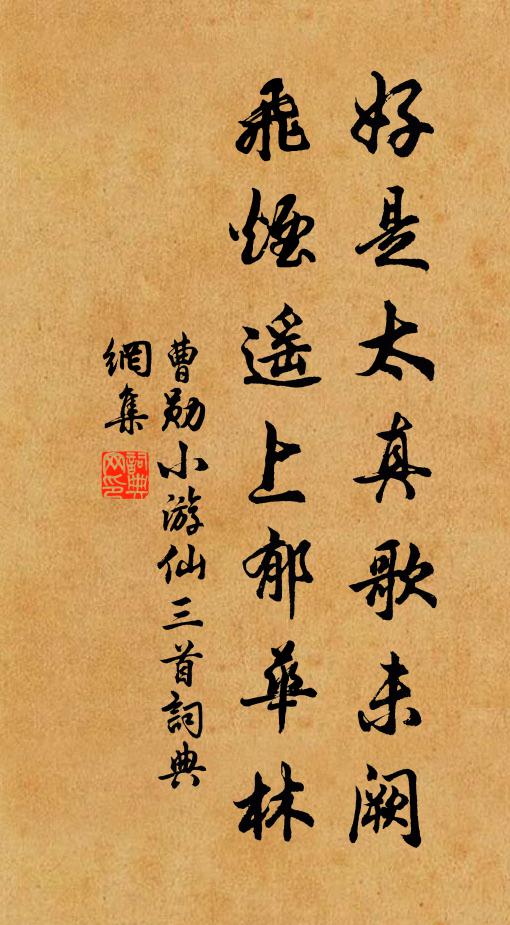 好是太真歌未阙
飛煙遥上郁華林
曹勋小游仙三首詞典
網集
詞典
网印